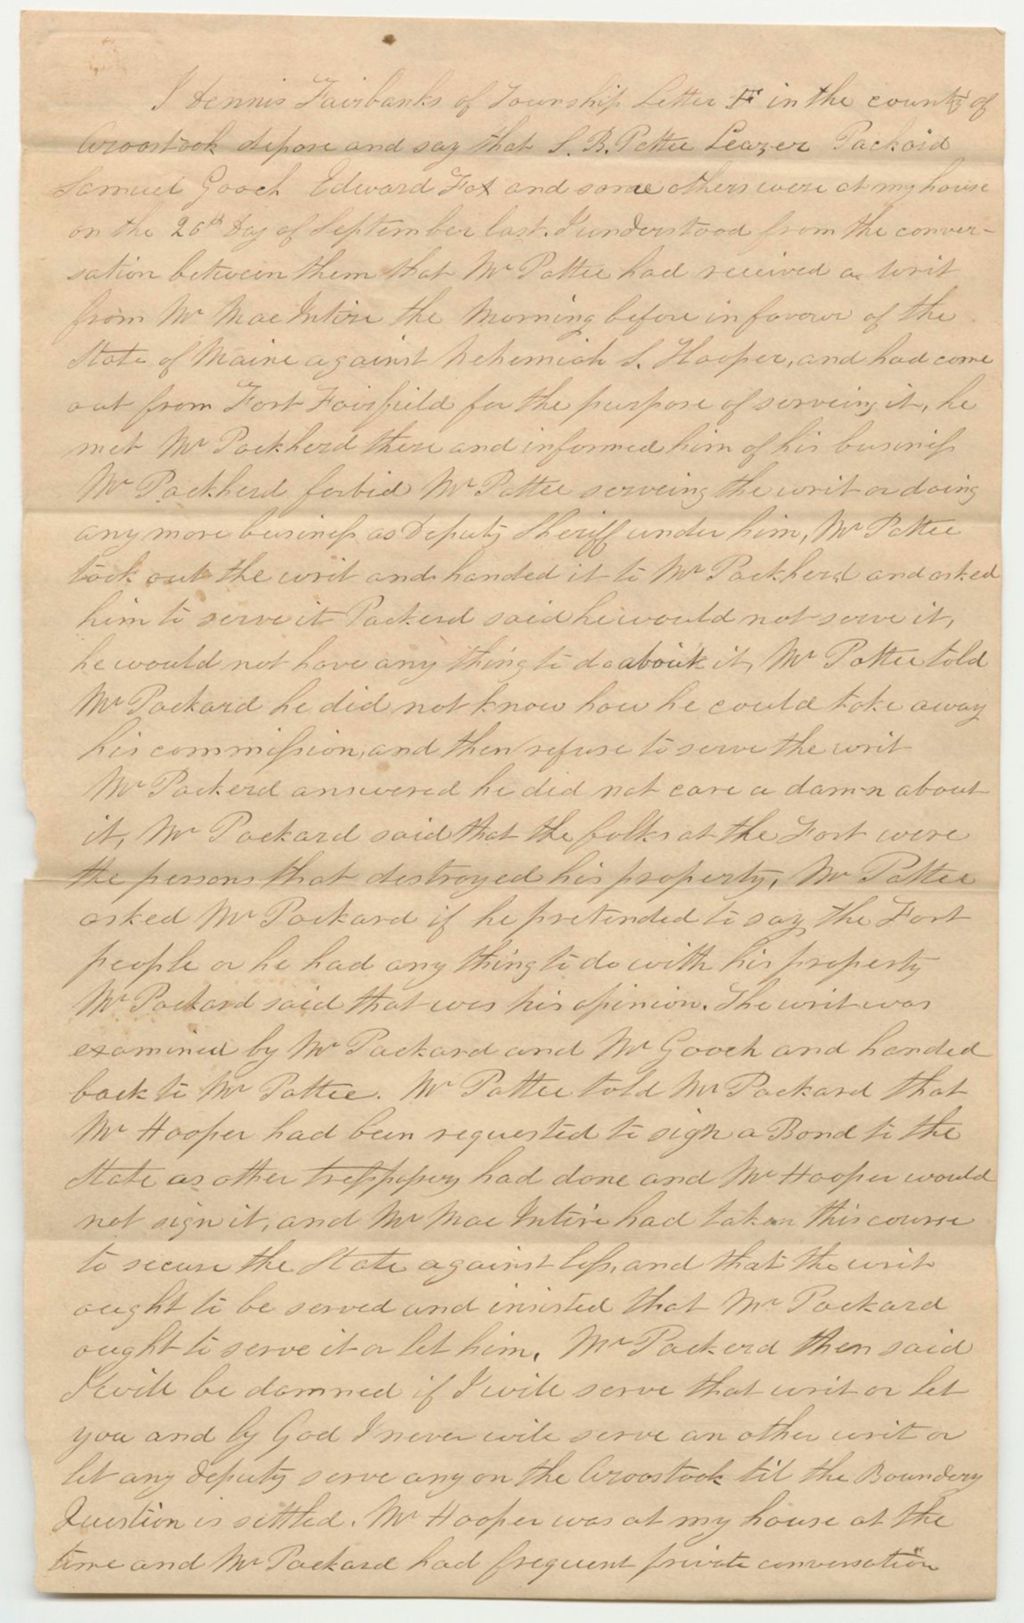 I Dennis Fairbanks of Township Letter F in the county of
Aroostook depose and say that S. B. Pattee Leazer Packard
Samuel Gooch Edward Fox and some others were at my house
on the 26th Day of September last. I understood from the conver-
sation between them that Mr Pattee had received a writ
from Mr Mac Intire the Morning before in favour of the
State of Maine against Nehemiah S. Hooper, and had come
out from Fort Fairfield for the purpose of serveing it, he
met Mr Packherd there and informed him of his business
Mr Packherd forbid Mr Pattee serveing the writ or doing
any more business as Deputy Sheriff under him, Mr Pattee
took out the writ and handed it to Mr Packherd and asked
him to serve it Packerd said he would not serve it,
he would not have any thing to do about it, Mr Pattee told
Mr Packard he did not know how he could take away
his commission, and then refuse to serve the writ
Mr Packerd answered he did not care a damn about
it, Mr Packard said that the folks at the Fort were
the persons that destroyed his property, Mr Pattee
asked Mr Packard if he pretended to say the Fort
people or he had any thing to do with his property
Mr Packard said that was his opinion. The writ was
examined by Mr Packard and Mr Gooch and handed
back to Mr Pattee. Mr Pattee told Mr Packard that
Mr Hooper had been requested to sign a Bond to the
State as other had done and Mr Hooper would
not sign it, and Mr Mac Intire had taken this course
to secure the State against loss, and that the writ
ought to be served and insisted that Mr Packard
ought to serve it or let him. Mr Packerd then said
I will be damned if I will serve that writ or let
you and by God I never will serve an other writ or
let any deputy serve any on the Aroostook til the Boundery
Question is settled. Mr Hooper was at my house at the
time and Mr Packard had frequent private conversation